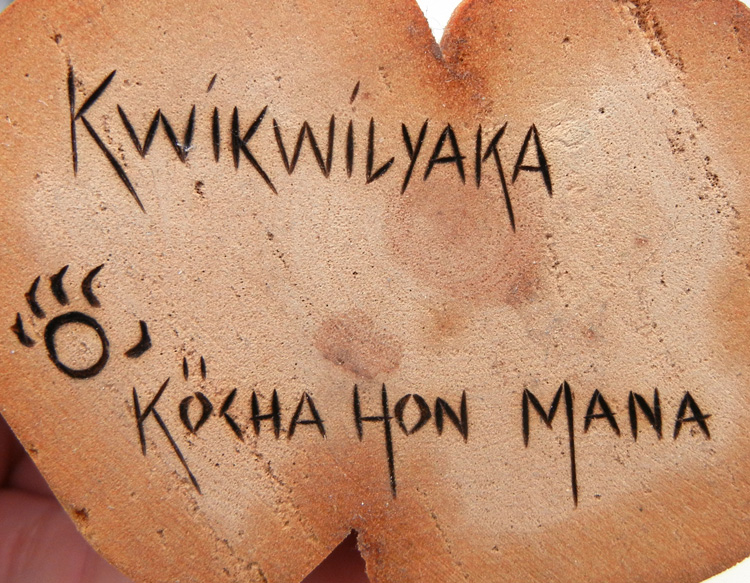 Kwikwilyaka
Köcha Hon Mana